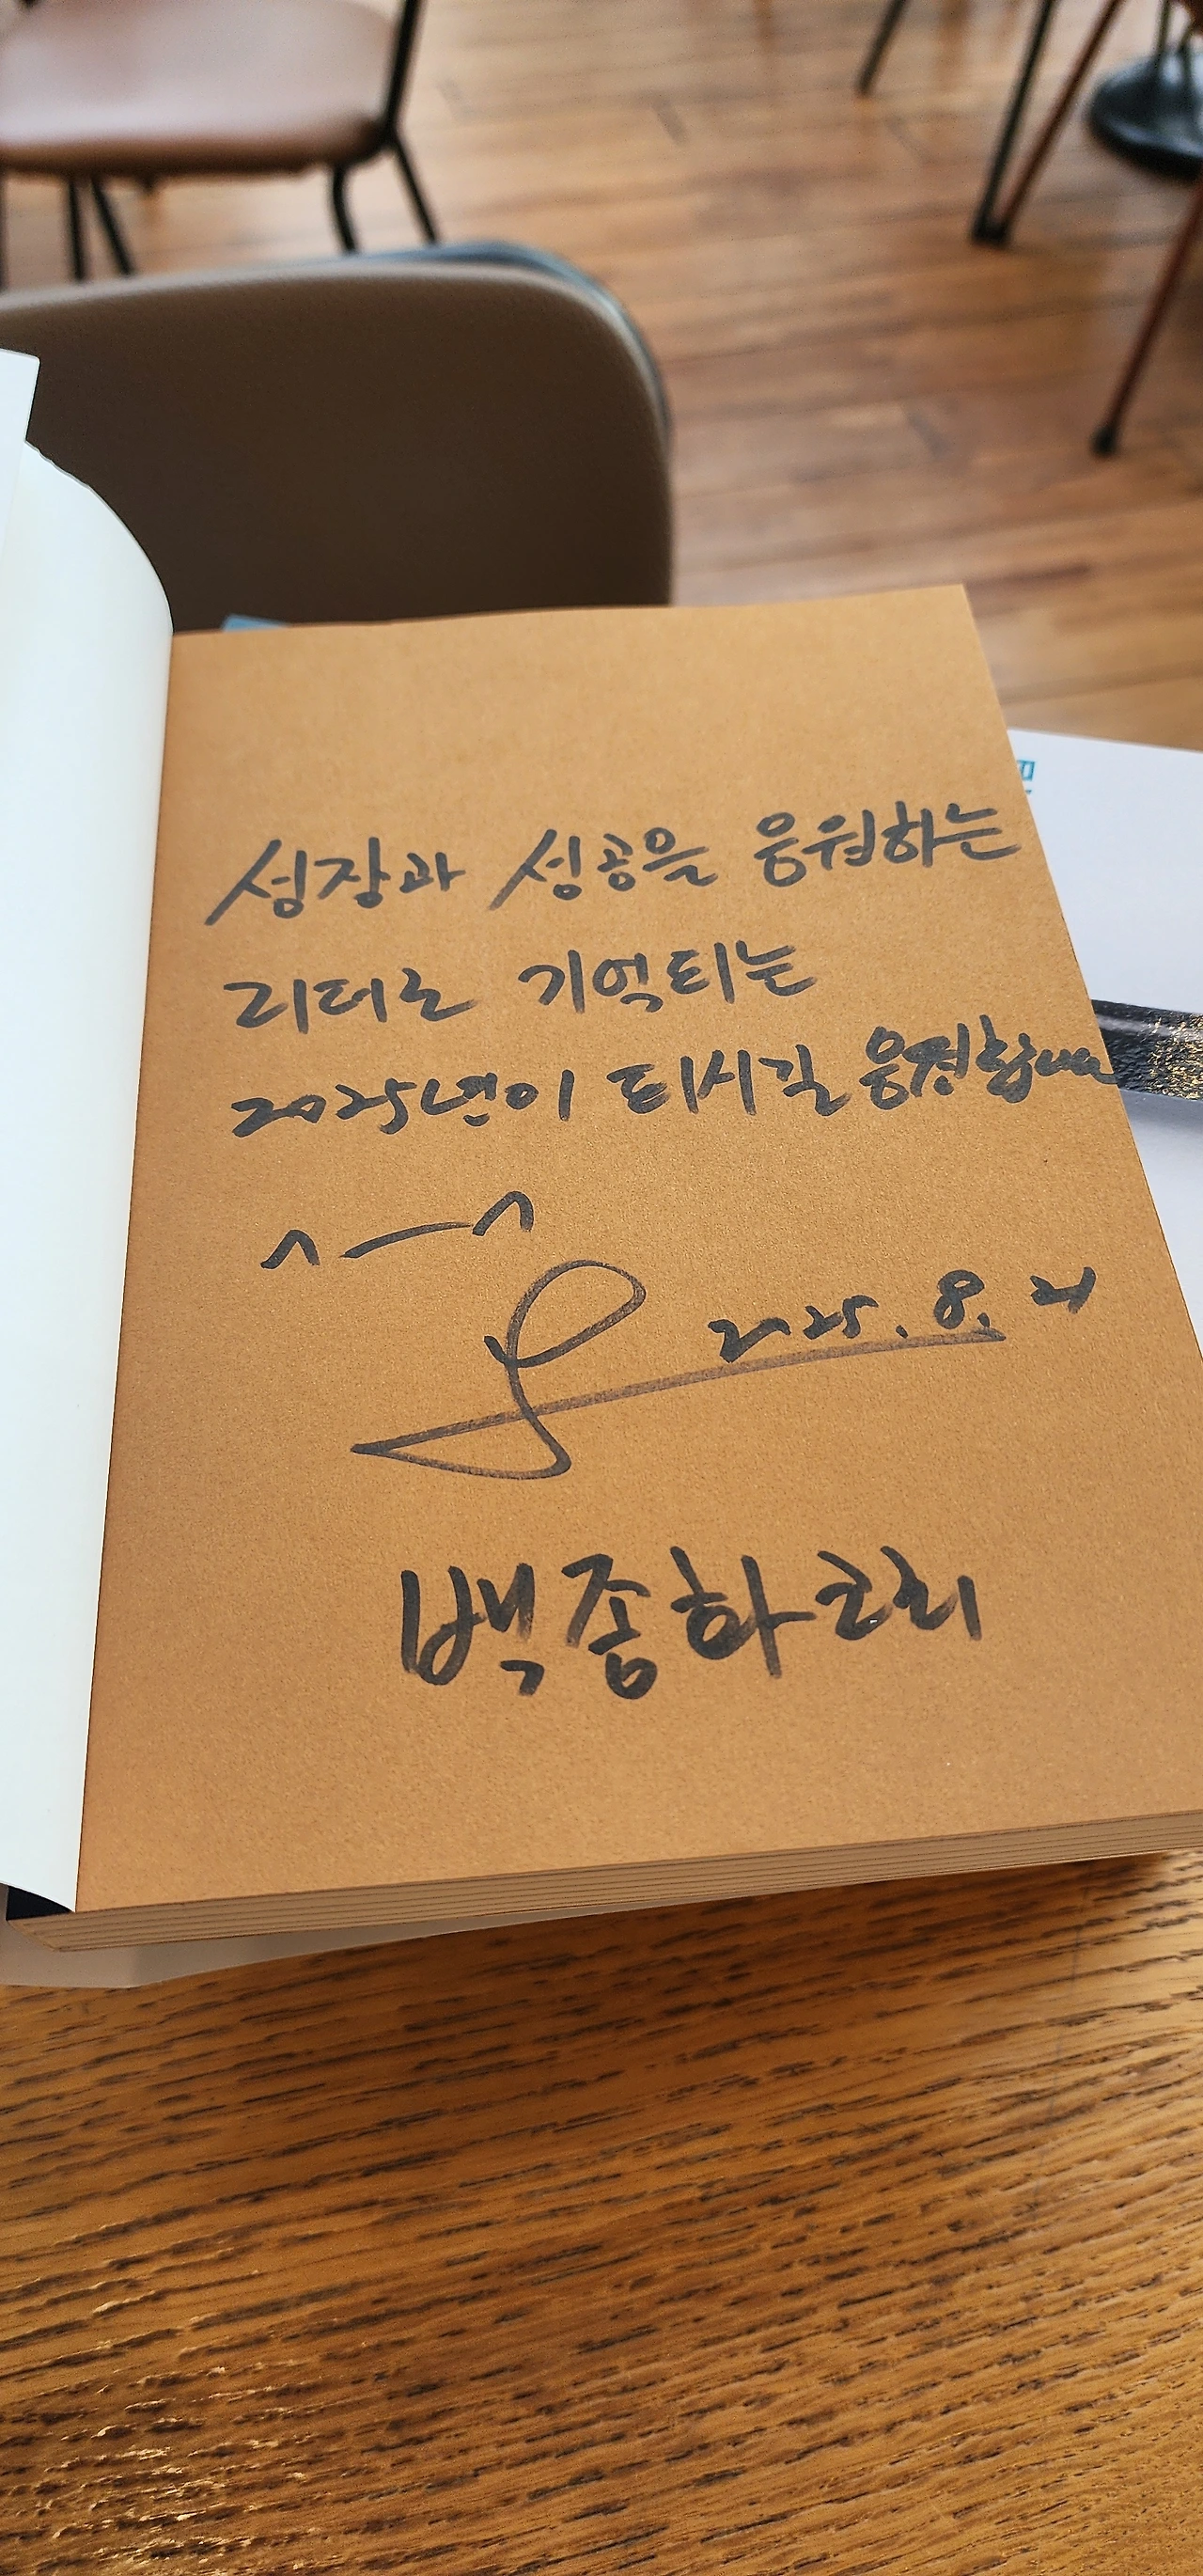 성장과 성공을 응원하는
리더로 기억되는
2025년이 되시길 응원합니다
^—^
2025. 8. 21
백종하코치